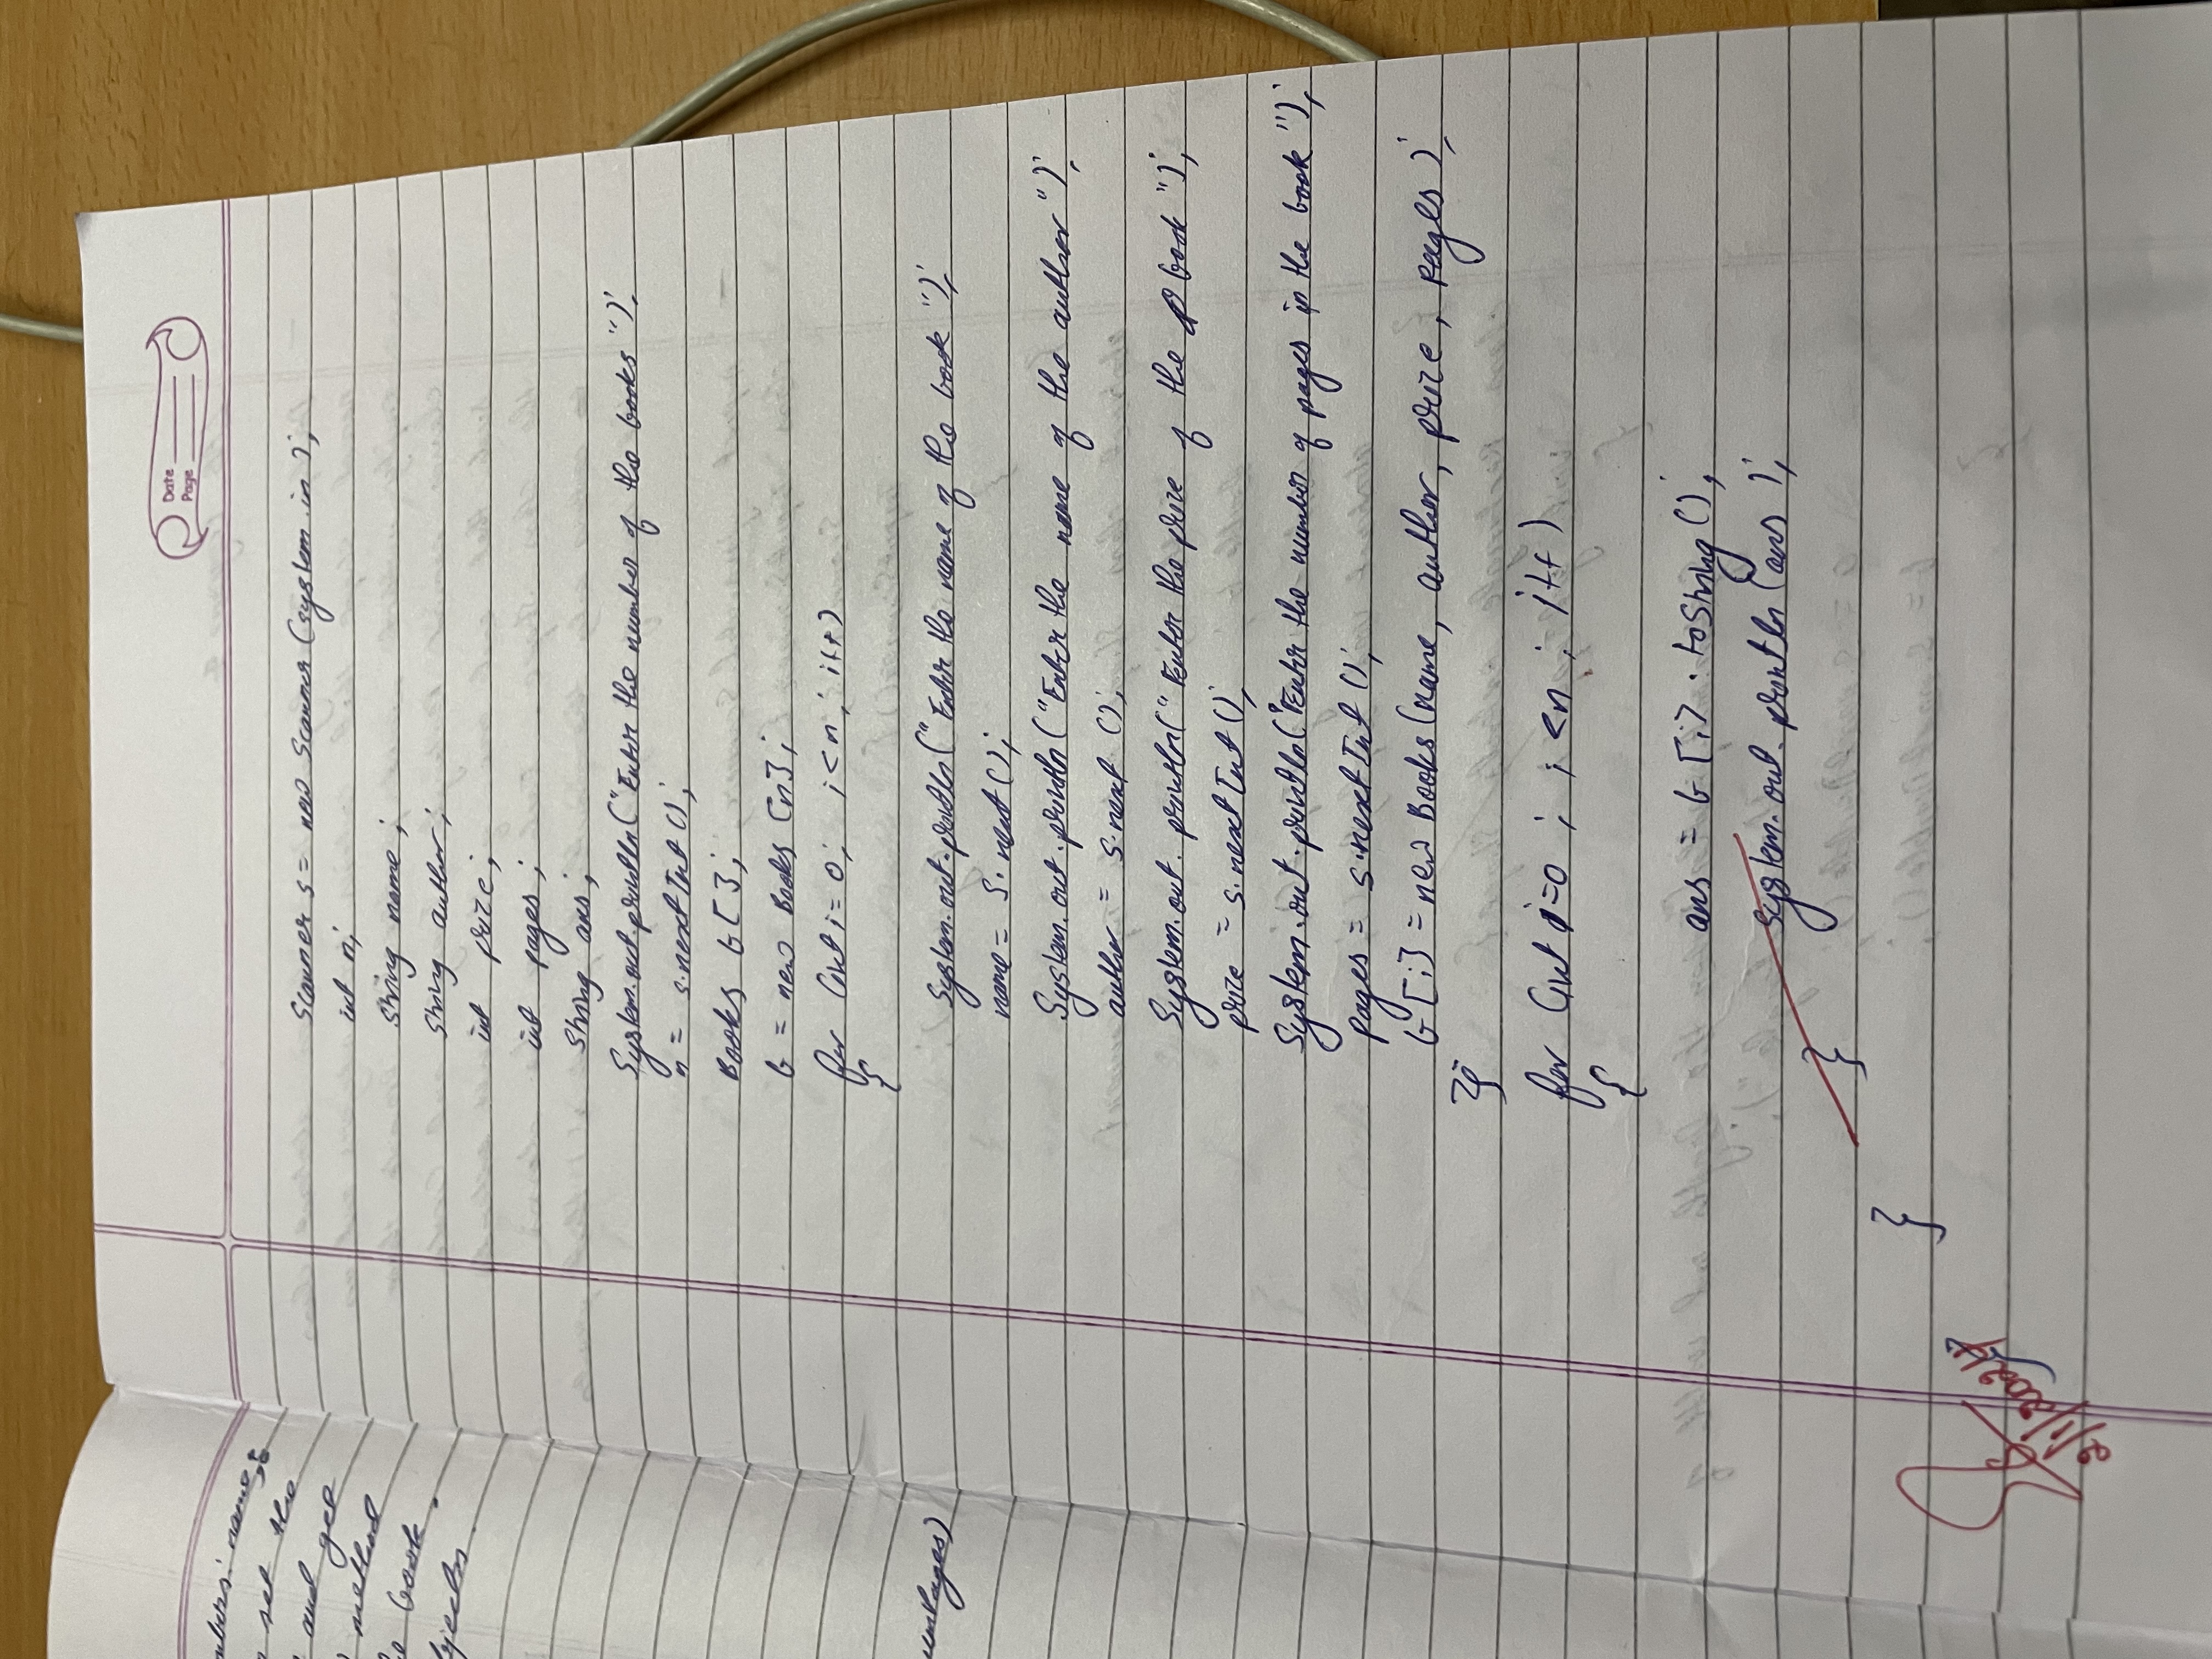 name;
set the
and get
method
book.
Date
Page
Scanner s = new Scanner (system.in);
int n;
String name;
String author;
int prize;
int pages;
String ans;
System.out.println("Enter the number of the books");
n = s.nextInt();
Books b[];
b = new Books [n];
for (int i=0; i<n; i++)
{
System.out.println("Enter the name of the book");
name = s.next();
System.out.println("Enter the name of the author");
author = s.next ();
System.out.println("Enter the price of the book");
prize = s.nextInt();
System.out.println("Enter the number of pages in the book");
pages = s.nextInt();
b[i] = new Books(name, author, prize, pages);
}
for (int i=0; i<n; i++)
{
ans = b[i].toString();
System.out.println(ans);
}
}
}
2/1/2024